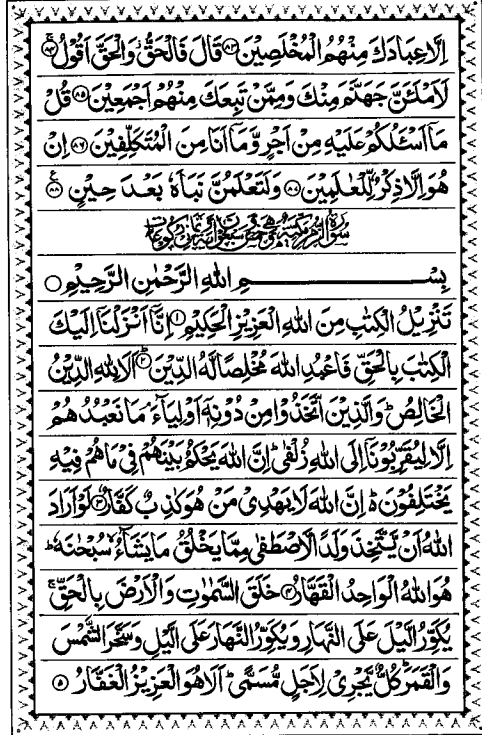 اِلَّا عِبَادَكَ مِنْهُمُ الْمُخْلَصِيْنَ ﴿۸۳﴾ قَالَ فَالْحَقُّ ۫ وَالْحَقَّ اَقُوْلُ ﴿۸۴﴾
لَاَمْلَئَنَّ جَهَنَّمَ مِنْكَ وَمِمَّنْ تَبِعَكَ مِنْهُمْ اَجْمَعِيْنَ ﴿۸۵﴾ قُلْ
مَاۤ اَسْـَٔلُكُمْ عَلَيْهِ مِنْ اَجْرٍ وَّمَاۤ اَنَا مِنَ الْمُتَكَلِّفِيْنَ ﴿۸۶﴾ اِنْ
هُوَ اِلَّا ذِكْرٌ لِّلْعٰلَمِيْنَ ﴿۸۷﴾ وَلَتَعْلَمُنَّ نَبَاَهٗ بَعْدَ حِيْنٍ ﴿۸۸﴾
سُوْرَةُ الزُّمَرِ مَكِّيَّةٌ وَّهِيَ خَمْسٌ وَّسَبْعُوْنَ اٰيَةً وَّثَمَانِيْ رُكُوْعَاتٍ
بِسْمِ اللهِ الرَّحْمٰنِ الرَّحِيْمِ
تَنْزِيْلُ الْكِتٰبِ مِنَ اللهِ الْعَزِيْزِ الْحَكِيْمِ ﴿۱﴾ اِنَّاۤ اَنْزَلْنَاۤ اِلَيْكَ
الْكِتٰبَ بِالْحَقِّ فَاعْبُدِ اللهَ مُخْلِصًا لَّهُ الدِّيْنَ ﴿۲﴾ اَلَا لِلّٰهِ الدِّيْنُ
الْخَالِصُ ؕ وَالَّذِيْنَ اتَّخَذُوْا مِنْ دُوْنِهٖۤ اَوْلِيَآءَ ۘ مَا نَعْبُدُهُمْ
اِلَّا لِيُقَرِّبُوْنَاۤ اِلَى اللهِ زُلْفٰى ؕ اِنَّ اللهَ يَحْكُمُ بَيْنَهُمْ فِيْ مَا هُمْ فِيْهِ
يَخْتَلِفُوْنَ ؕ۬ اِنَّ اللهَ لَا يَهْدِيْ مَنْ هُوَ كٰذِبٌ كَفَّارٌ ﴿۳﴾ لَوْ اَرَادَ
اللهُ اَنْ يَّتَّخِذَ وَلَدًا لَّاصْطَفٰى مِمَّا يَخْلُقُ مَا يَشَآءُ ۙ سُبْحٰنَهٗ ؕ
هُوَ اللهُ الْوَاحِدُ الْقَهَّارُ ﴿۴﴾ خَلَقَ السَّمٰوٰتِ وَالْاَرْضَ بِالْحَقِّ ۚ
يُكَوِّرُ الَّيْلَ عَلَى النَّهَارِ وَيُكَوِّرُ النَّهَارَ عَلَى الَّيْلِ وَسَخَّرَ الشَّمْسَ
وَالْقَمَرَ ؕ كُلٌّ يَّجْرِيْ لِاَجَلٍ مُّسَمًّى ؕ اَلَا هُوَ الْعَزِيْزُ الْغَفَّارُ ﴿۵﴾